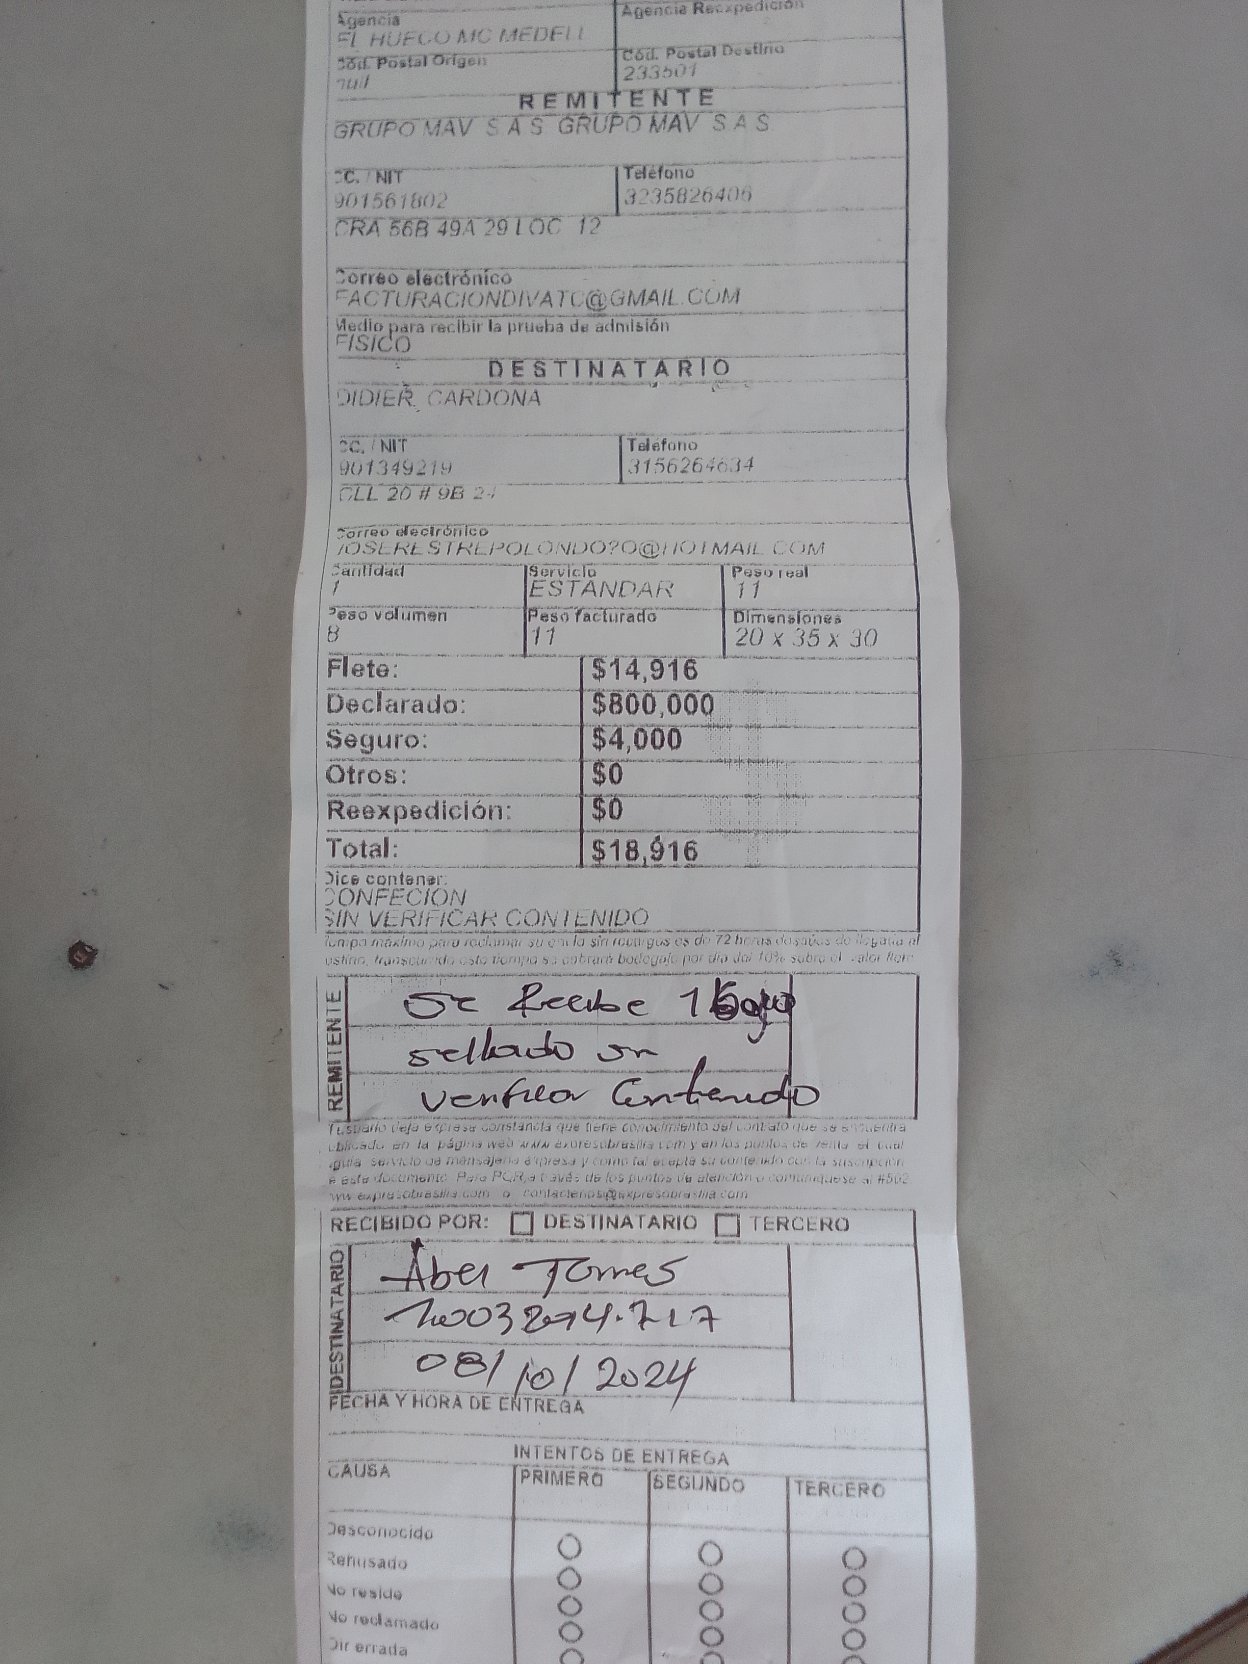 Agencia
Agencia Reexpedición
EL HUECO MC MEDELL
Cód. Postal Origen
Cód. Postal Destino
null
233501
REMITENTE
GRUPO MAV S A S GRUPO MAV S A S
CC. / NIT
Teléfono
901561802
3235826406
CRA 56B 49A 29 LOC 12
Correo electrónico
FACTURACIONDIVATC@GMAIL.COM
Medio para recibir la prueba de admisión
FISICO
DESTINATARIO
DIDIER CARDONA
CC. / NIT
Teléfono
901349219
3156264634
CLL 20 # 9B 24
Correo electrónico
JOSERESTREPOLONDO?O@HOTMAIL.COM
Cantidad
Servicio
Peso real
1
ESTANDAR
11
Peso volumen
Peso facturado
Dimensiones
8
11
20 x 35 x 30
Flete: $14,916
Declarado: $800,000
Seguro: $4,000
Otros: $0
Reexpedición: $0
Total: $18,916
Dice contener:
CONFECION
SIN VERIFICAR CONTENIDO
tiempo máximo para reclamar su envío sin recargos es de 72 horas después de llegada al
destino, transcurrido este tiempo se cobrará bodegaje por día del 10% sobre el valor flete
REMITENTE
Se Recibe 1
sellado sin
verificar Contenido
l usuario deja expresa constancia que tiene conocimiento del contrato que se encuentra
ublicado en la página web www.expresobrasilia.com y en los puntos de venta el cual
egula servicio de mensajería expresa y como tal acepta su contenido con la suscripción
e este documento. Para PQR, a través de los puntos de atención o comuníquese al #502
ww.expresobrasilia.com o contactenos@expresobrasilia.com
RECIBIDO POR: DESTINATARIO TERCERO
DESTINATARIO
Abel Torres
08/10/2024
FECHA Y HORA DE ENTREGA
INTENTOS DE ENTREGA
CAUSA
PRIMERO
SEGUNDO
TERCERO
Desconocido
Rehusado
No reside
No reclamado
Dir errada